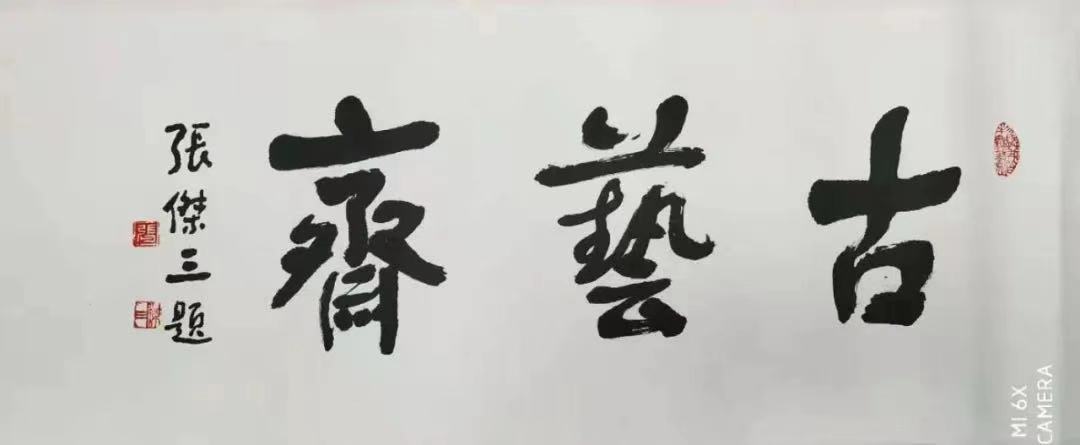 古藝齋
張傑三題
MI 6X
CAMERA